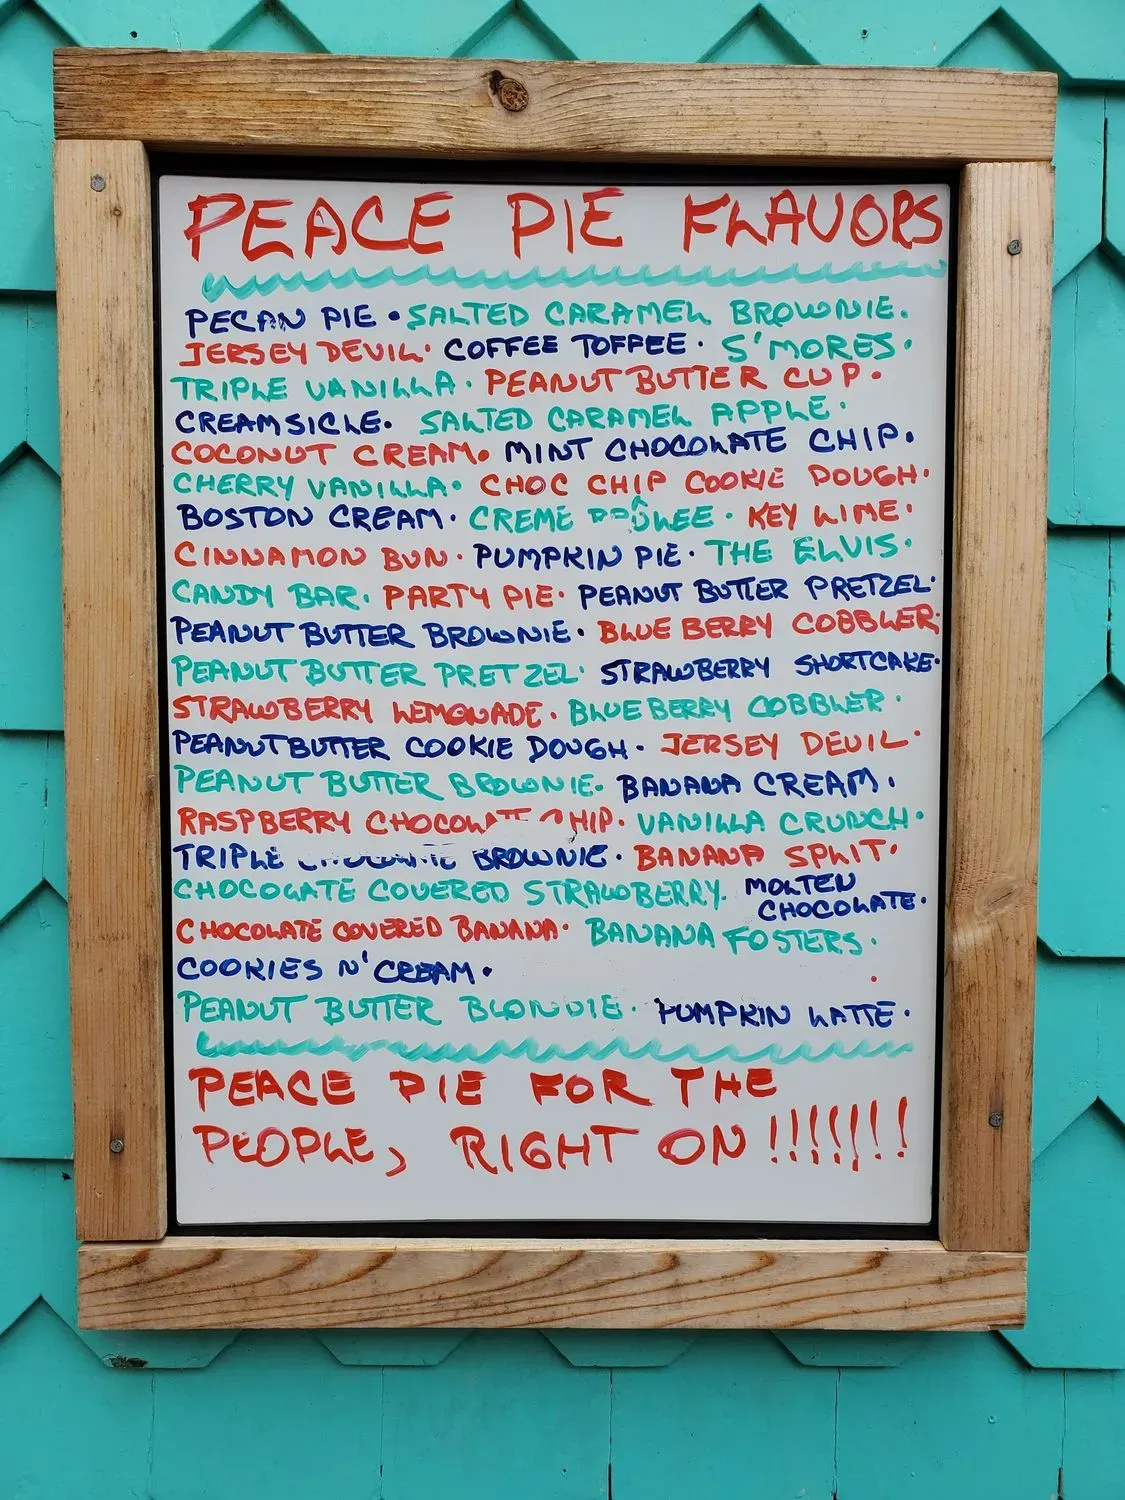 PEACE PIE FLAVORS
PECAN PIE • SALTED CARAMEL BROWNIE.
JERSEY DEVIL• COFFEE TOFFEE • S'MORES •
TRIPLE VANILLA • PEANUT BUTTER CUP •
CREAMSICLE. SALTED CARAMEL APPLE •
COCONUT CREAM. MINT CHOCOLATE CHIP.
CHERRY VANILLA • CHOC CHIP COOKIE DOUGH •
BOSTON CREAM • CREME • KEY LIME •
CINNAMON BUN • PUMPKIN PIE • THE ELVIS •
CANDY BAR • PARTY PIE • PEANUT BUTTER PRETZEL •
PEANUT BUTTER BROWNIE • BLUEBERRY COBBLER •
PEANUT BUTTER PRETZEL • STRAWBERRY SHORTCAKE •
STRAWBERRY LEMONADE • BLUEBERRY COBBLER •
PEANUT BUTTER COOKIE DOUGH • JERSEY DEVIL •
PEANUT BUTTER BROWNIE • BANANA CREAM •
RASPBERRY CHOCOLATE CHIP • VANILLA CRUNCH •
TRIPLE CHOCOLATE BROWNIE • BANANA SPLIT •
CHOCOLATE COVERED STRAWBERRY. MOLTEN
CHOCOLATE •
CHOCOLATE COVERED BANANA • BANANA FOSTERS •
COOKIES N' CREAM •
PEANUT BUTTER BLONDIE • PUMPKIN LATTE •
PEACE PIE FOR THE
PEOPLE, RIGHT ON !!!!!!!